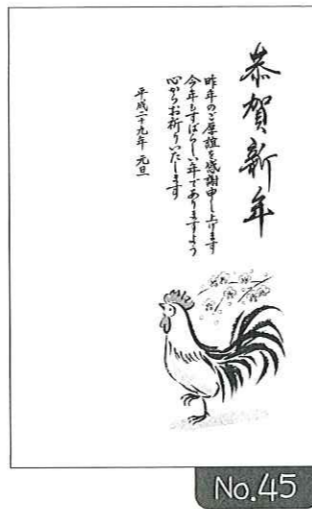 恭賀新年
昨年のご厚誼を感謝申し上げます
今年もすばらしい年でありますよう
心からお祈りいたします
平成二十九年 元旦
No.45